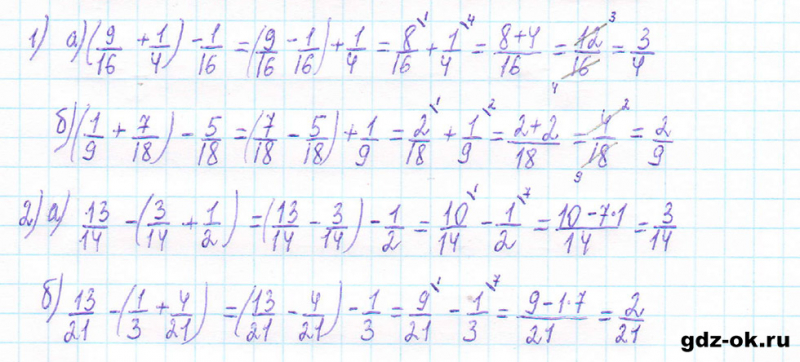 1) а) (9/16 + 1/4) - 1/16 = (9/16 - 1/16) + 1/4 = 8/16 \1 + 1/4 \4 = 8+4/16 = 12/16 3 4 = 3/4
б) (1/9 + 7/18) - 5/18 = (7/18 - 5/18) + 1/9 = 2/18 \1 + 1/9 \2 = 2+2/18 = 4/18 2 9 = 2/9
2) а) 13/14 - (3/14 + 1/2) = (13/14 - 3/14) - 1/2 = 10/14 \1 - 1/2 \7 = 10-7·1/14 = 3/14
б) 13/21 - (1/3 + 4/21) = (13/21 - 4/21) - 1/3 = 9/21 \1 - 1/3 \7 = 9-1·7/21 = 2/21
gdz-ok.ru